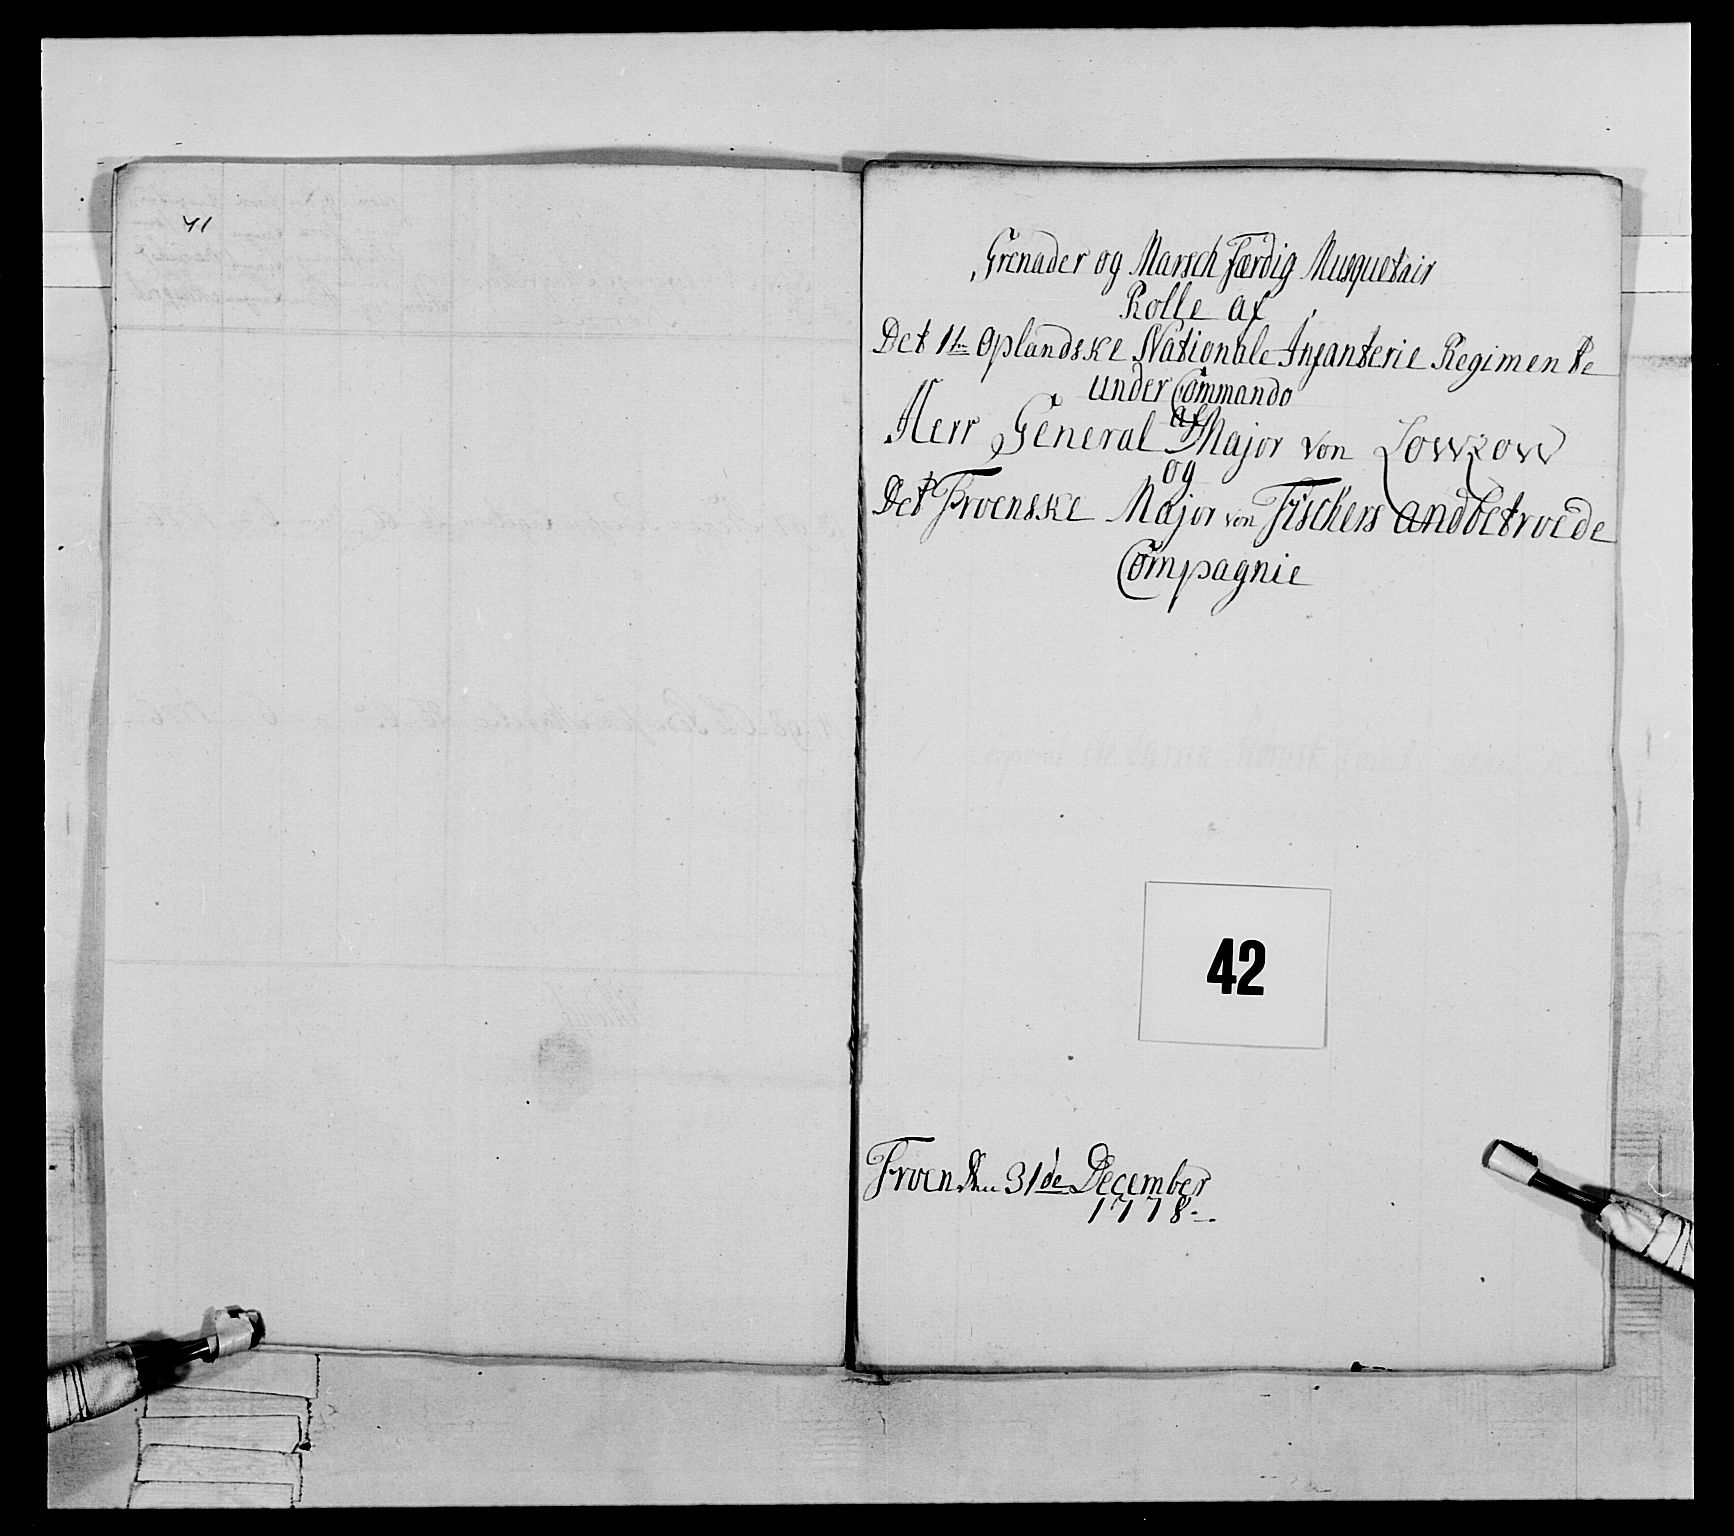 41
Grenader og Marsch Færdig Musquetair
Rolle af
Det 1te Oplandske Nationale Infanterie Regimente
under Commando
af
Herr General Major von Lowzow
og
Det Froenske Major von Fischers andbetroede
Compagnie
42
Froen den 31de December
1778.